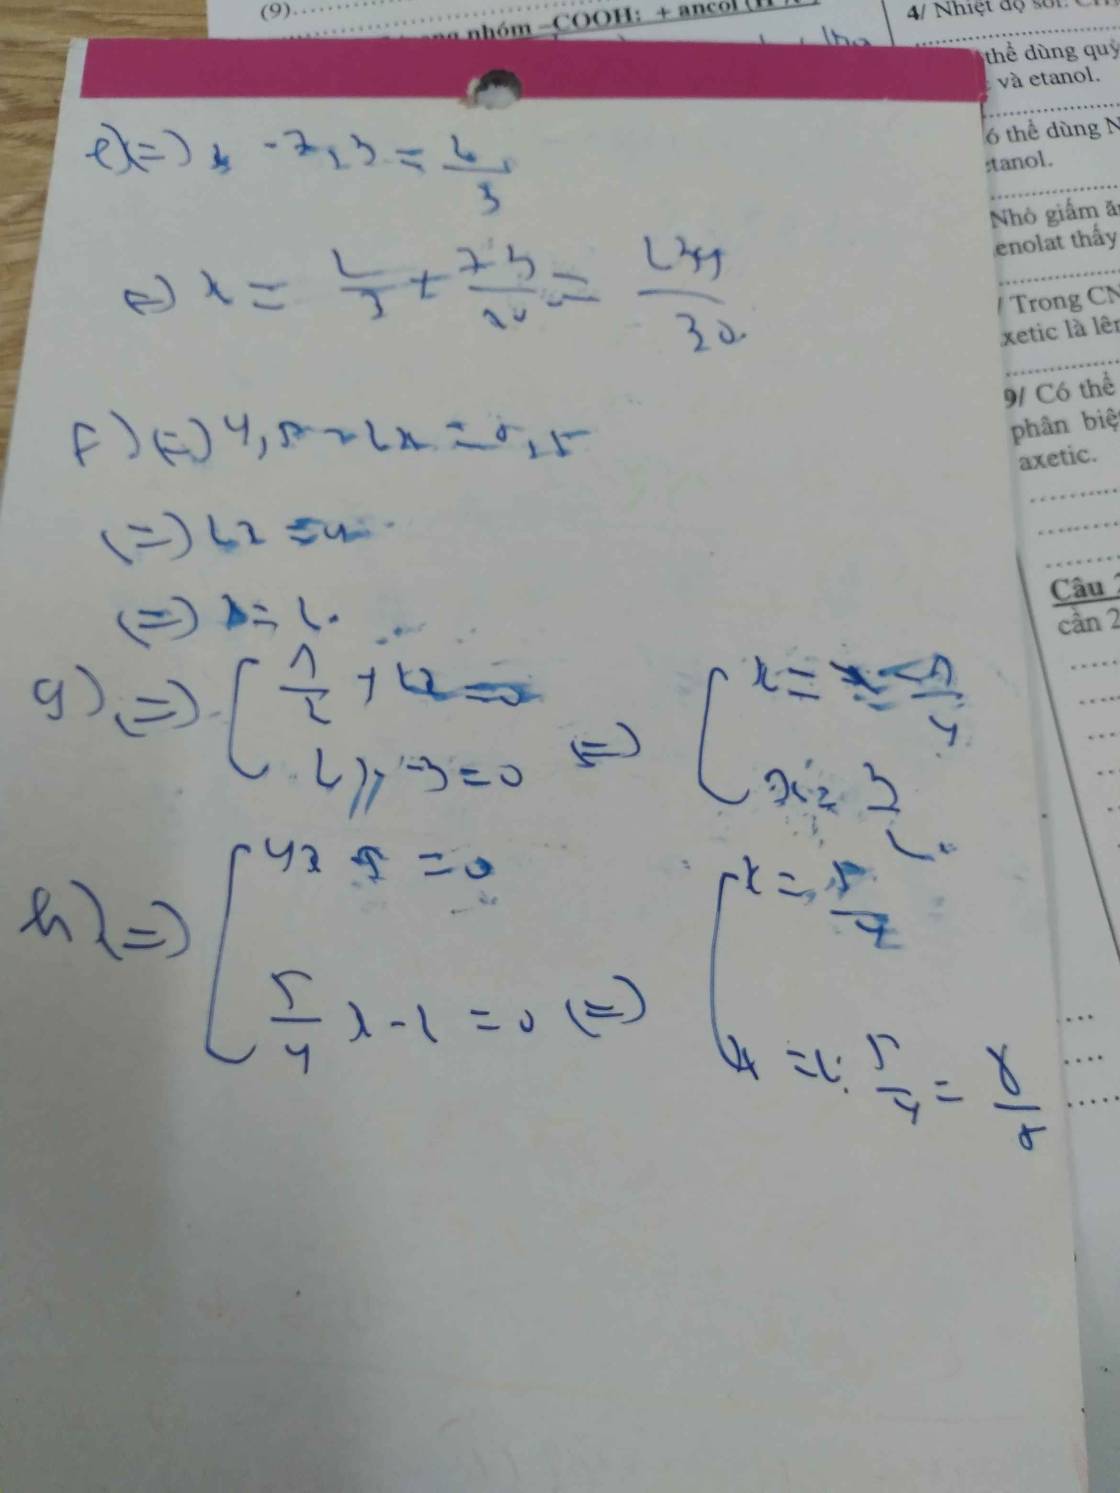 (9)
nhóm –COOH: + ancol
4/ Nhiệt độ sôi:
thể dùng quỳ
và etanol.
thể dùng N
etanol.
Nhỏ giấm ă
enolat thấy
/ Trong CN
xetic là lên
9/ Có thể
phân biệ
axetic.
Câu
cần 2
e) (=) x - 7,3 = 2/3
(=) x = 2/3 + 73/10 = 239/30
f) (=) 4,5 - 2x = 0,5
(=) 2x = 4
(=) x = 2.
g) (=) [ 1/2 + 2x = 0
2x - 3 = 0 (=) [ x = -1/4
x = 3/2
h) (=) [ 4x 5 = 0
5/4 x - 2 = 0 (=) [ x = 5/4
x = 2 : 5/4 = 8/5